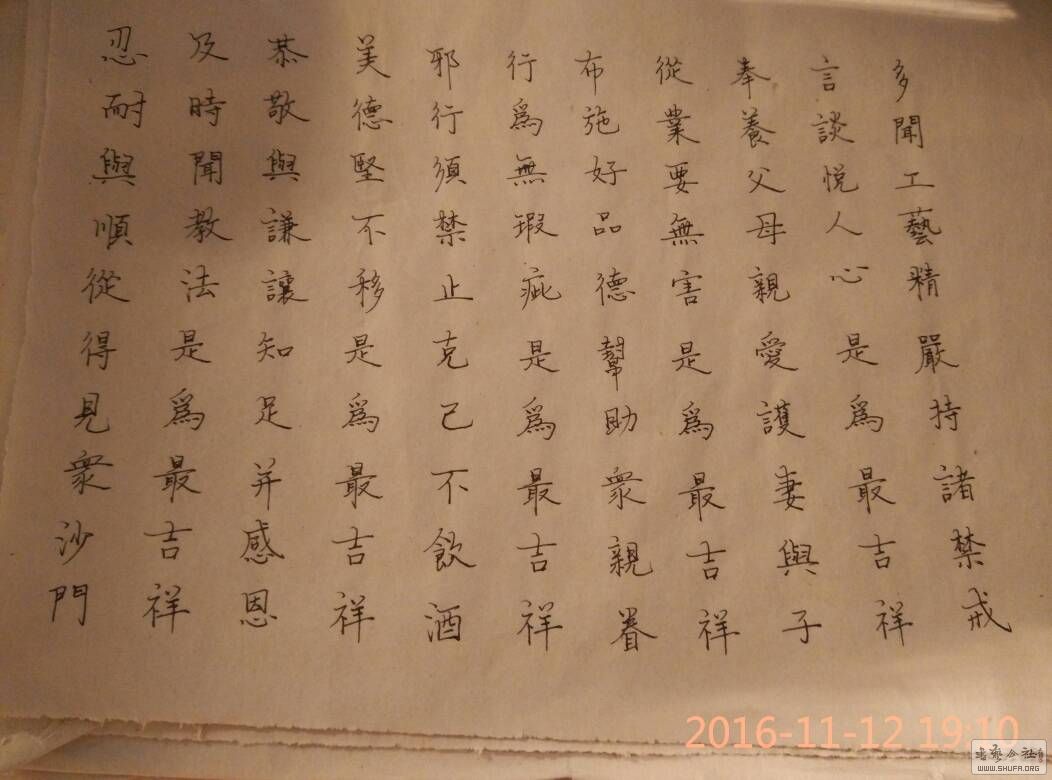 多聞工藝精嚴持諸禁戒
言談悅人心是為最吉祥
奉養父母親愛護妻與子
從業要無害是為最吉祥
布施好品德幫助衆親眷
行為無瑕疵是為最吉祥
邪行須禁止克己不飲酒
美德堅不移是為最吉祥
恭敬與謙讓知足并感恩
及時聞教法是為最吉祥
忍耐與順從得見衆沙門
2016-11-12 19:10
WWW.SHUFA.ORG